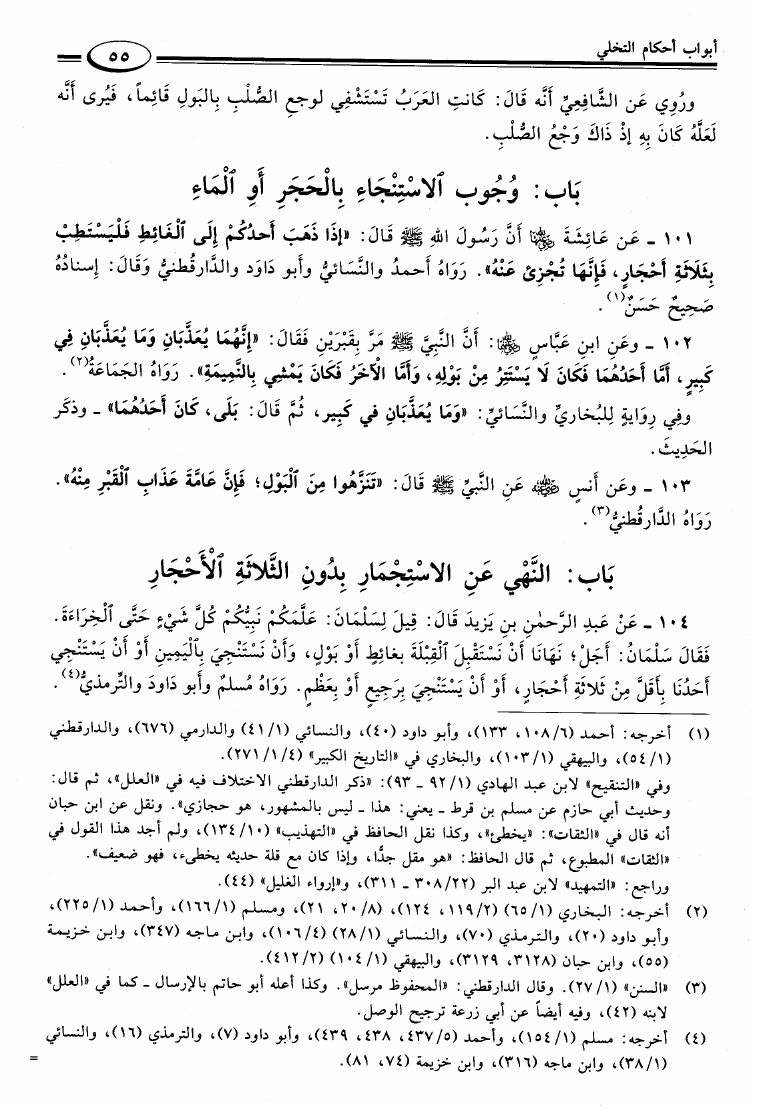 أبواب أحكام التخلي
٥٥
ورُوِي عَن الشَّافِعِيِّ أَنَّه قَالَ: كَانَتِ العَرَبُ تَسْتَشْفِي لوجعِ الصُّلْبِ بِالبَولِ قَائِماً، فَيُرى أنَّه
لَعَلَّهُ كَانَ بِهِ إذْ ذَاكَ وَجْعُ الصُّلْبِ.
بَاب: وُجُوب الاسْتِنْجَاءِ بِالْحَجَرِ أَوِ الْمَاءِ
١٠١ - عَن عَائِشَةَ ﵂ أَنَّ رَسُولَ اللهِ ﷺ قَالَ: «إِذَا ذَهَبَ أَحدُكُمْ إِلَى الْغَائِطِ فَلْيَسْتَطِبْ
بِثَلَاثَةِ أَحْجَارٍ، فَإِنَّهَا تُجْزِئ عَنْهُ». رَوَاهُ أحمدُ والنَّسائيُّ وأبو دَاوُد والدَّارقُطنيُّ وَقَالَ: إسنادُهُ
صَحِيحٌ حَسَنٌ(١).
١٠٢ - وعَنِ ابنِ عَبَّاسٍ ﵄: أَنَّ النَّبِيَّ ﷺ مَرَّ بِقَبْرَيْنِ فَقَالَ: «إِنَّهُمَا يُعَذَّبَانِ وَمَا يُعَذَّبَانِ فِي
كَبِيرٍ، أَمَّا أَحدُهُمَا فَكَانَ لَا يَسْتَتِرُ مِنْ بَوْلِهِ، وَأَمَّا الْآخَرُ فَكَانَ يَمْشِي بِالنَّمِيمَةِ». رَوَاهُ الجَمَاعَةُ(٢).
وفِي رِوَايَةٍ لِلبُخَاريِّ والنَّسَائيِّ: «وَمَا يُعَذَّبَانِ في كَبِيرٍ، ثُمَّ قَالَ: بَلَى، كَانَ أَحدُهُمَا» - وذكَر
الحَدِيثَ.
١٠٣ - وعَن أَنسٍ ﵁ عَنِ النَّبيِّ ﷺ قَالَ: «تَنَزَّهُوا مِنَ الْبَوْلِ؛ فَإِنَّ عَامَّةَ عَذَابِ الْقَبْرِ مِنْهُ».
رَوَاهُ الدَّارقطنيُّ(٣).
بَاب: النَّهْي عَنِ الاسْتِجْمَارِ بِدُونِ الثَّلاثَةِ الْأَحْجَارِ
١٠٤ - عَنْ عَبدِ الرَّحمٰنِ بنِ يَزِيدَ قَالَ: قِيلَ لِسَلْمَانَ: عَلَّمَكُمْ نَبِيُّكُمْ كُلَّ شَيْءٍ حَتَّى الْخِرَاءَةَ.
فَقَالَ سَلْمَانُ: أَجَلْ؛ نَهَانَا أَنْ نَسْتَقْبِلَ الْقِبْلَةَ بِغَائِطٍ أَوْ بَوْلٍ، وَأَنْ نَسْتَنْجِيَ بِالْيَمِينِ أَوْ أَنْ يَسْتَنْجِي
أَحَدُنَا بِأَقَلَّ مِنْ ثَلَاثَةِ أَحْجَارٍ، أَوْ أَنْ يَسْتَنْجِيَ بِرَجِيعٍ أَوْ بِعَظْمٍ. رَوَاهُ مُسلمٌ وأبو دَاودَ والتِّرمذيُّ(٤).
(١) أخرجه: أحمد (١٠٨/٦، ١٣٣)، وأبو داود (٤٠)، والنسائي (٤١/١) والدارمي (٦٧٦)، والدارقطني
(٥٤/١)، والبيهقي (١٠٣/١)، والبخاري في «التاريخ الكبير» (٢٧١/١/٤).
وفي «التنقيح» لابن عبد الهادي (٩٢/١ - ٩٣): «ذكر الدارقطني الاختلاف فيه في «العلل»، ثم قال:
وحديث أبي حازم عن مسلم بن قرط - يعني: هذا - ليس بالمشهور، هو حجازي». ونقل عن ابن حبان
أنه قال في «الثقات»: «يخطئ»، وكذا نقل الحافظ في «التهذيب» (١٣٤/١٠)، ولم أجد هذا القول في
«الثقات» المطبوع، ثم قال الحافظ: «هو مقل جدًّا، وإذا كان مع قلة حديثه يخطىء، فهو ضعيف».
وراجع: «التمهيد» لابن عبد البر (٣٠٨/٢٢ - ٣١١)، و«إرواء الغليل» (٤٤).
(٢) أخرجه: البخاري (٦٥/١) (١١٩/٢، ١٢٤)، (٢٠/٨، ٢١)، ومسلم (١٦٦/١)، وأحمد (٢٢٥/١)،
وأبو داود (٢٠)، والترمذي (٧٠)، والنسائي (٢٨/١) (١٠٦/٤)، وابن ماجه (٣٤٧)، وابن خزيمة
(٥٥)، وابن حبان (٣١٢٨، ٣١٢٩)، والبيهقي (١٠٤/١) (٤١٢/٢).
(٣) «السنن» (٢٧/١). وقال الدارقطني: «المحفوظ مرسل». وكذا أعله أبو حاتم بالإرسال - كما في «العلل»
لابنه (٤٢)، وفيه أيضاً عن أبي زرعة ترجيح الوصل.
(٤) أخرجه: مسلم (١٥٤/١)، وأحمد (٤٣٧/٥، ٤٣٨، ٤٣٩)، وأبو داود (٧)، والترمذي (١٦)، والنسائي
(٣٨/١)، وابن ماجه (٣١٦)، وابن خزيمة (٧٤، ٨١). =